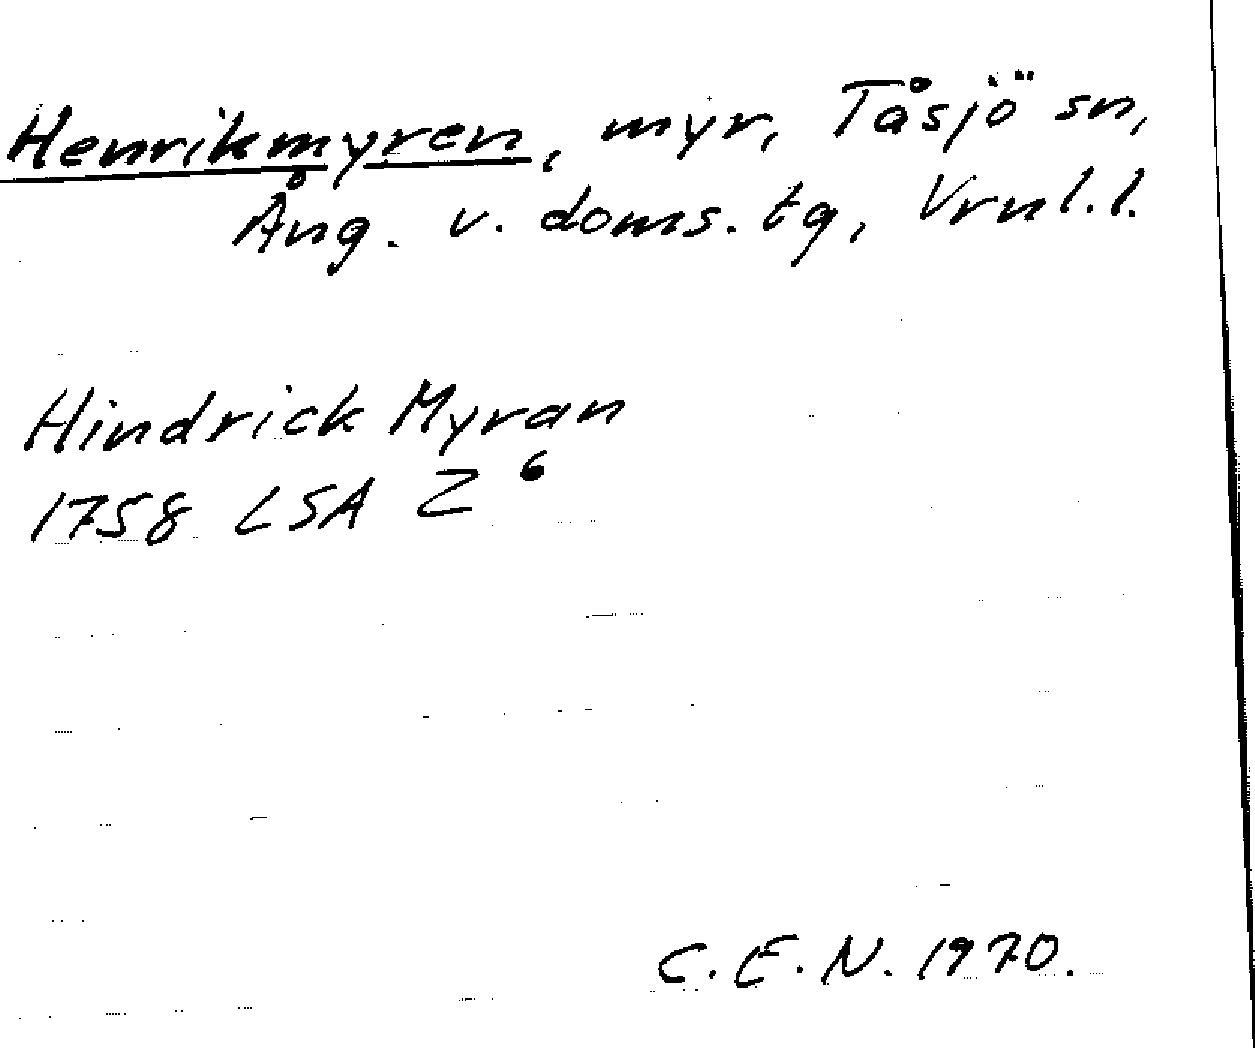 Henrikmyren, myr, Tåsjö sn,
Ång. v. doms. tg, Vrnl.l.
Hindrick Myran
1758 LSA Z 6
C.E.N. 1970.